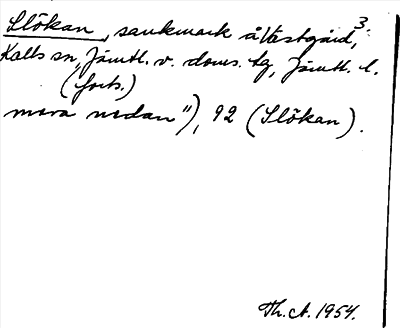 Slökan, sankmark å Västgård, 3.
Kalls sn, Jämtl. v. doms. tg, Jämtl. l.
(forts.)
mora nedan"), 92 (Slökan).
Th. A. 1954.